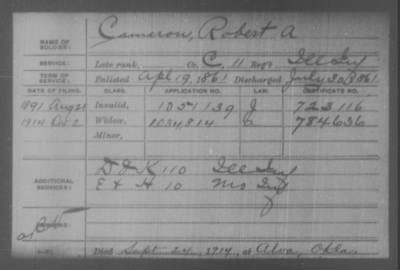 NAME OF SOLDIER: Cameron, Robert A
SERVICE: Late rank, Co. C, 11 Reg't Ill Inf
TERM OF SERVICE: Enlisted Apl 19, 1861 Discharged July 30, 1861
DATE OF FILING. CLASS. APPLICATION NO. LAW. CERTIFICATE NO.
1891 Aug 21 Invalid, 1051139 J 723116
1914 Oct 2 Widow, 1034814 784636
Minor,
ADDITIONAL SERVICES: D & K 110 Ill Inf
E & H 10 Mo Inf
Died Sept 24, 1914, at Alva, Okla.